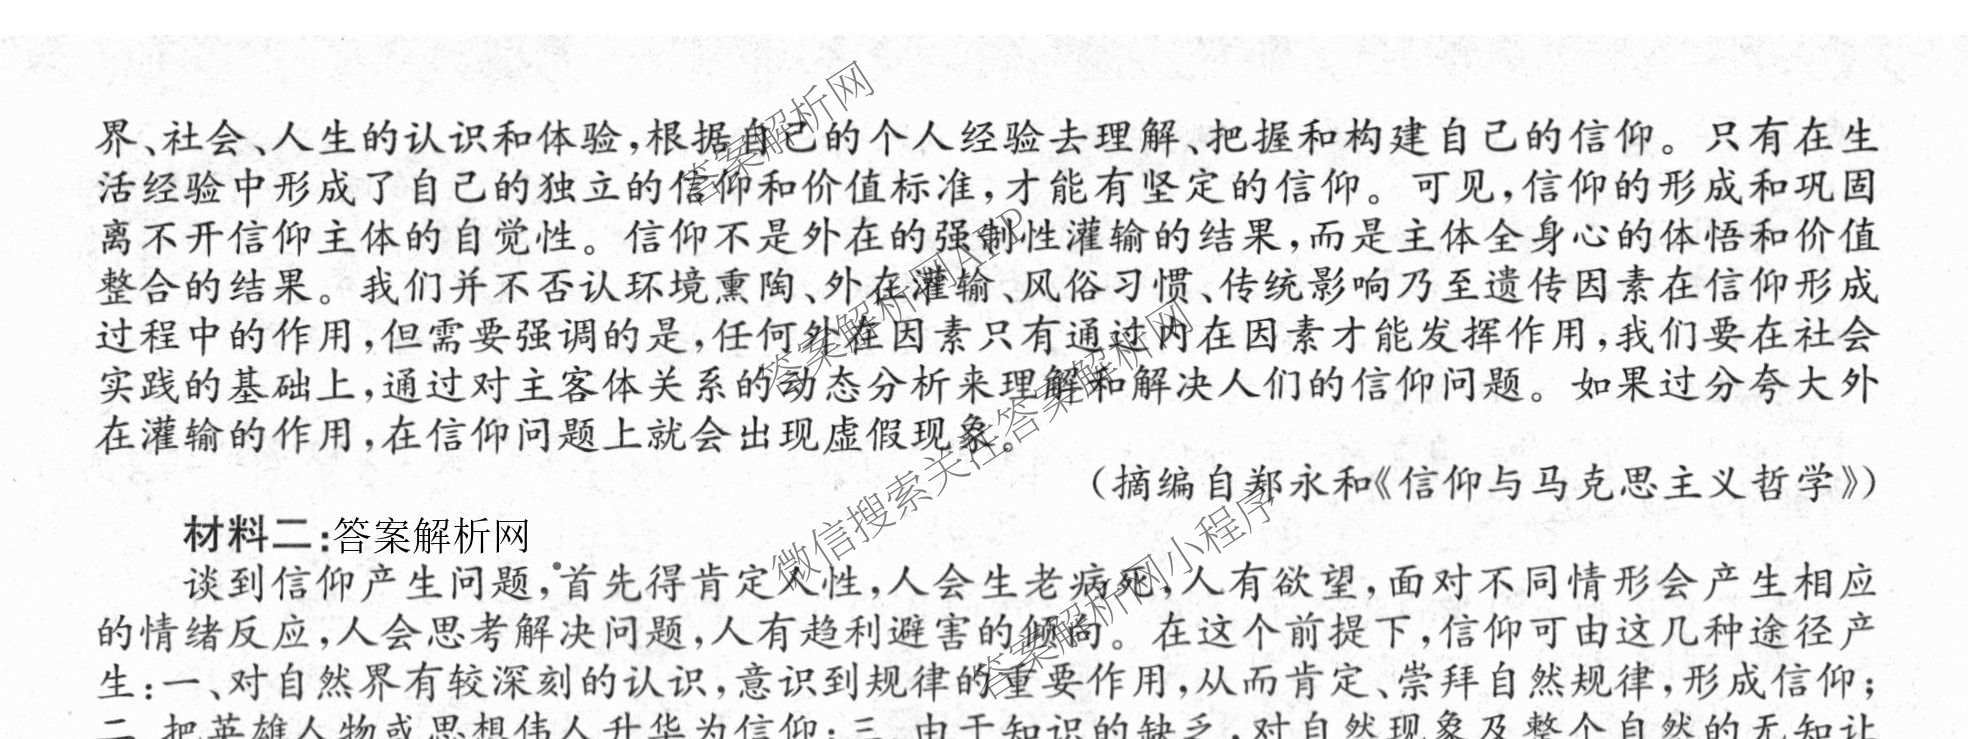 界、社会、人生的认识和体验,根据自己的个人经验去理解、把握和构建自己的信仰。只有在生
活经验中形成了自己的独立的信仰和价值标准,才能有坚定的信仰。可见,信仰的形成和巩固
离不开信仰主体的自觉性。信仰不是外在的强制性灌输的结果,而是主体全身心的体悟和价值
整合的结果。我们并不否认环境熏陶、外在灌输、风俗习惯、传统影响乃至遗传因素在信仰形成
过程中的作用,但需要强调的是,任何外在因素只有通过内在因素才能发挥作用,我们要在社会
实践的基础上,通过对主客体关系的动态分析来理解和解决人们的信仰问题。如果过分夸大外
在灌输的作用,在信仰问题上就会出现虚假现象。
(摘编自郑永和《信仰与马克思主义哲学》)
材料二:答案解析网
谈到信仰产生问题,首先得肯定人性,人会生老病死,人有欲望,面对不同情形会产生相应
的情绪反应,人会思考解决问题,人有趋利避害的倾向。在这个前提下,信仰可由这几种途径产
生:一、对自然界有较深刻的认识,意识到规律的重要作用,从而肯定、崇拜自然规律,形成信仰;
二、把英雄人物或思想伟人升华为信仰;三、由于知识的缺乏,对自然现象及整个自然的无知让
答案解析网
答案解析网APP
微信搜索关注答案解析网
答案解析网小程序